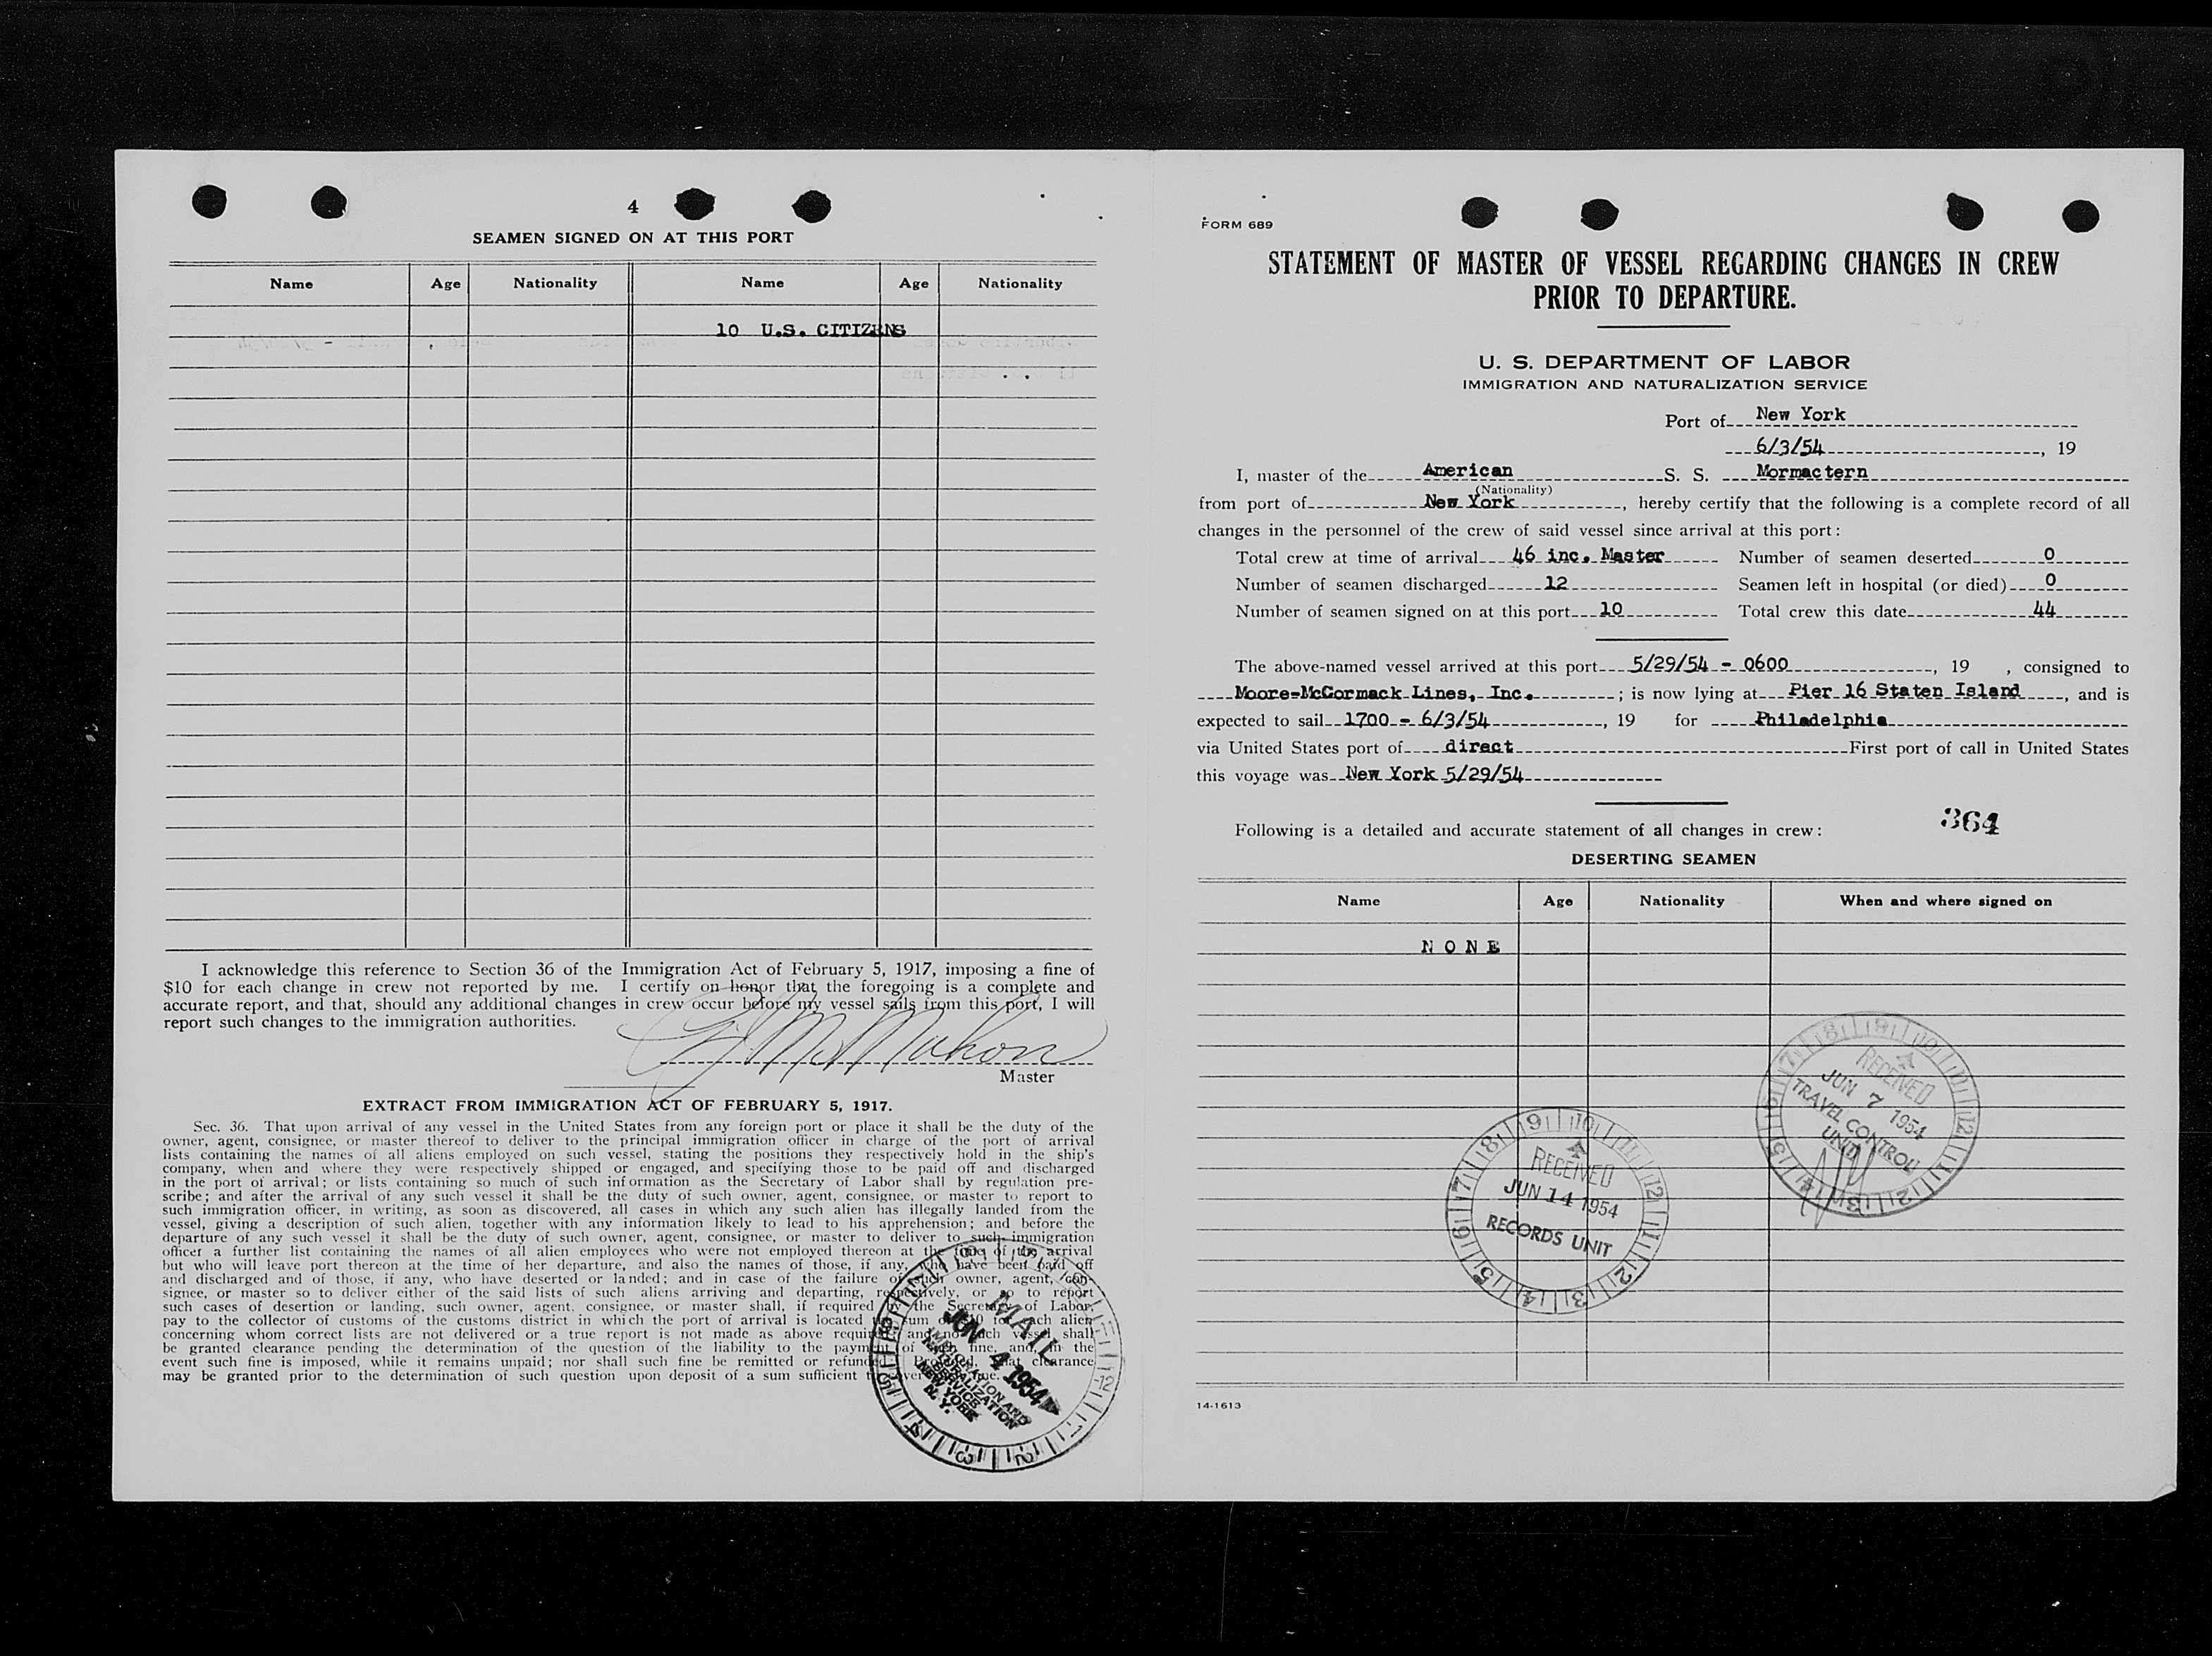 4
SEAMEN SIGNED ON AT THIS PORT
Name Age Nationality Name Age Nationality
10 U.S. CITIZENS
I acknowledge this reference to Section 36 of the Immigration Act of February 5, 1917, imposing a fine of
$10 for each change in crew not reported by me. I certify on honor that the foregoing is a complete and
accurate report, and that, should any additional changes in crew occur before my vessel sails from this port, I will
report such changes to the immigration authorities.
McMahon
Master
EXTRACT FROM IMMIGRATION ACT OF FEBRUARY 5, 1917.
Sec. 36. That upon arrival of any vessel in the United States from any foreign port or place it shall be the duty of the
owner, agent, consignee, or master thereof to deliver to the principal immigration officer in charge of the port of arrival
lists containing the names of all aliens employed on such vessel, stating the positions they respectively hold in the ship's
company, when and where they were respectively shipped or engaged, and specifying those to be paid off and discharged
in the port of arrival; or lists containing so much of such information as the Secretary of Labor shall by regulation pre-
scribe; and after the arrival of any such vessel it shall be the duty of such owner, agent, consignee, or master to report to
such immigration officer, in writing, as soon as discovered, all cases in which any such alien has illegally landed from the
vessel, giving a description of such alien, together with any information likely to lead to his apprehension; and before the
departure of any such vessel it shall be the duty of such owner, agent, consignee, or master to deliver to such immigration
officer a further list containing the names of all alien employees who were not employed thereon at the time of the arrival
but who will leave port thereon at the time of her departure, and also the names of those, if any, who have been paid off
and discharged and of those, if any, who have deserted or landed; and in case of the failure of such owner, agent, con-
signee, or master so to deliver either of the said lists of such aliens arriving and departing, respectively, or so to report
such cases of desertion or landing, such owner, agent, consignee, or master shall, if required by the Secretary of Labor,
pay to the collector of customs of the customs district in which the port of arrival is located the sum of $10 for each alien
concerning whom correct lists are not delivered or a true report is not made as above required; and no such vessel shall
be granted clearance pending the determination of the question of the liability to the payment of such fine, and, in the
event such fine is imposed, while it remains unpaid; nor shall such fine be remitted or refunded: Provided, That clearance
may be granted prior to the determination of such question upon deposit of a sum sufficient to cover such fine.
MAIL
JUN 4 1954
IMMIGRATION AND
NATURALIZATION
SERVICE
NEW YORK
N. Y.
FORM 689
STATEMENT OF MASTER OF VESSEL REGARDING CHANGES IN CREW
PRIOR TO DEPARTURE.
U. S. DEPARTMENT OF LABOR
IMMIGRATION AND NATURALIZATION SERVICE
Port of New York
6/3/54, 19
I, master of the American S. S. Mormactern
(Nationality)
from port of New York, hereby certify that the following is a complete record of all
changes in the personnel of the crew of said vessel since arrival at this port:
Total crew at time of arrival 46 inc. Master Number of seamen deserted 0
Number of seamen discharged 12 Seamen left in hospital (or died) 0
Number of seamen signed on at this port 10 Total crew this date 44
The above-named vessel arrived at this port 5/29/54 - 0600, 19 , consigned to
Moore-McCormack Lines, Inc.; is now lying at Pier 16 Staten Island, and is
expected to sail 1700 - 6/3/54, 19 for Philadelphia
via United States port of direct First port of call in United States
this voyage was New York 5/29/54
364
Following is a detailed and accurate statement of all changes in crew:
DESERTING SEAMEN
Name Age Nationality When and where signed on
NONE
RECEIVED
JUN 7 1954
TRAVEL CONTROL
UNIT
RECEIVED
JUN 14 1954
RECORDS UNIT
14-1613